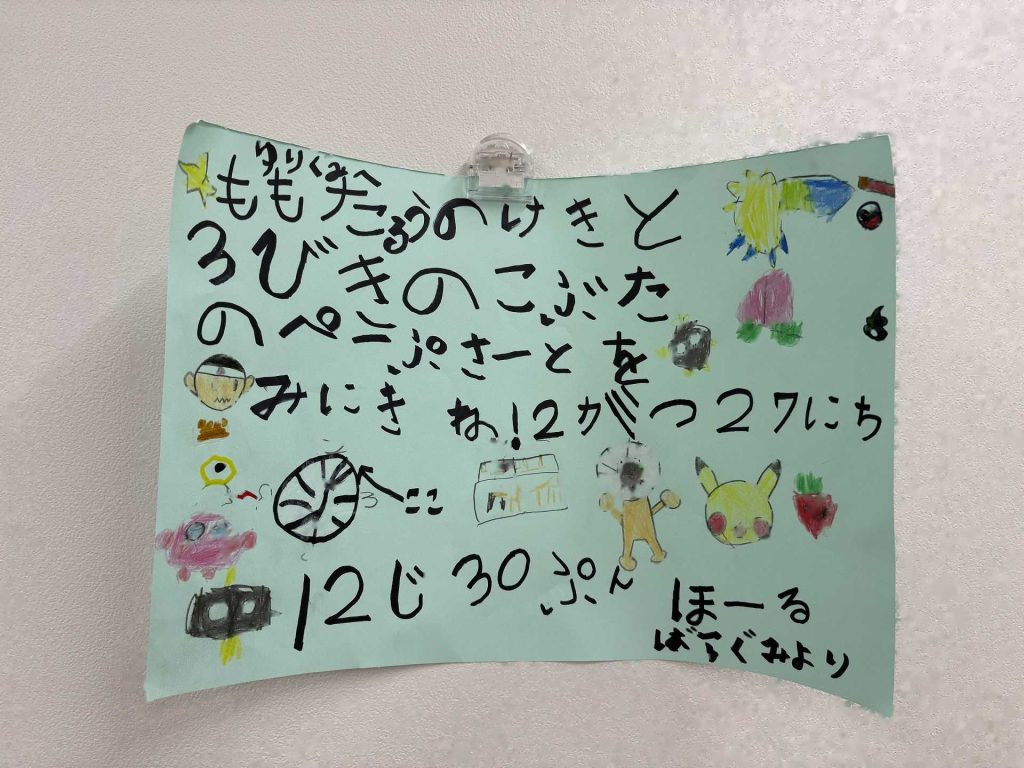 ゆりぐみへ
ももたろうのけきと
3びきのこぶた
のペープさーとを
みにきね!2がつ27にち
ここ
12じ30ぷん
ほーる
ばらぐみより